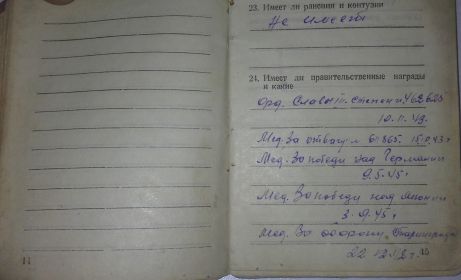 23. Имеет ли ранения и контузии
Не имеет
24. Имеет ли правительственные награды
и какие
Орд. Славы III степени 462625
10.11.43.
Мед. За отвагу 61865. 15.10.43 г
Мед. За победу над Германией
9.5.45 г
Мед. За победу над Японией
3.9.45 г
Мед. За оборону Сталинграда
22.12.42 г.
14
15